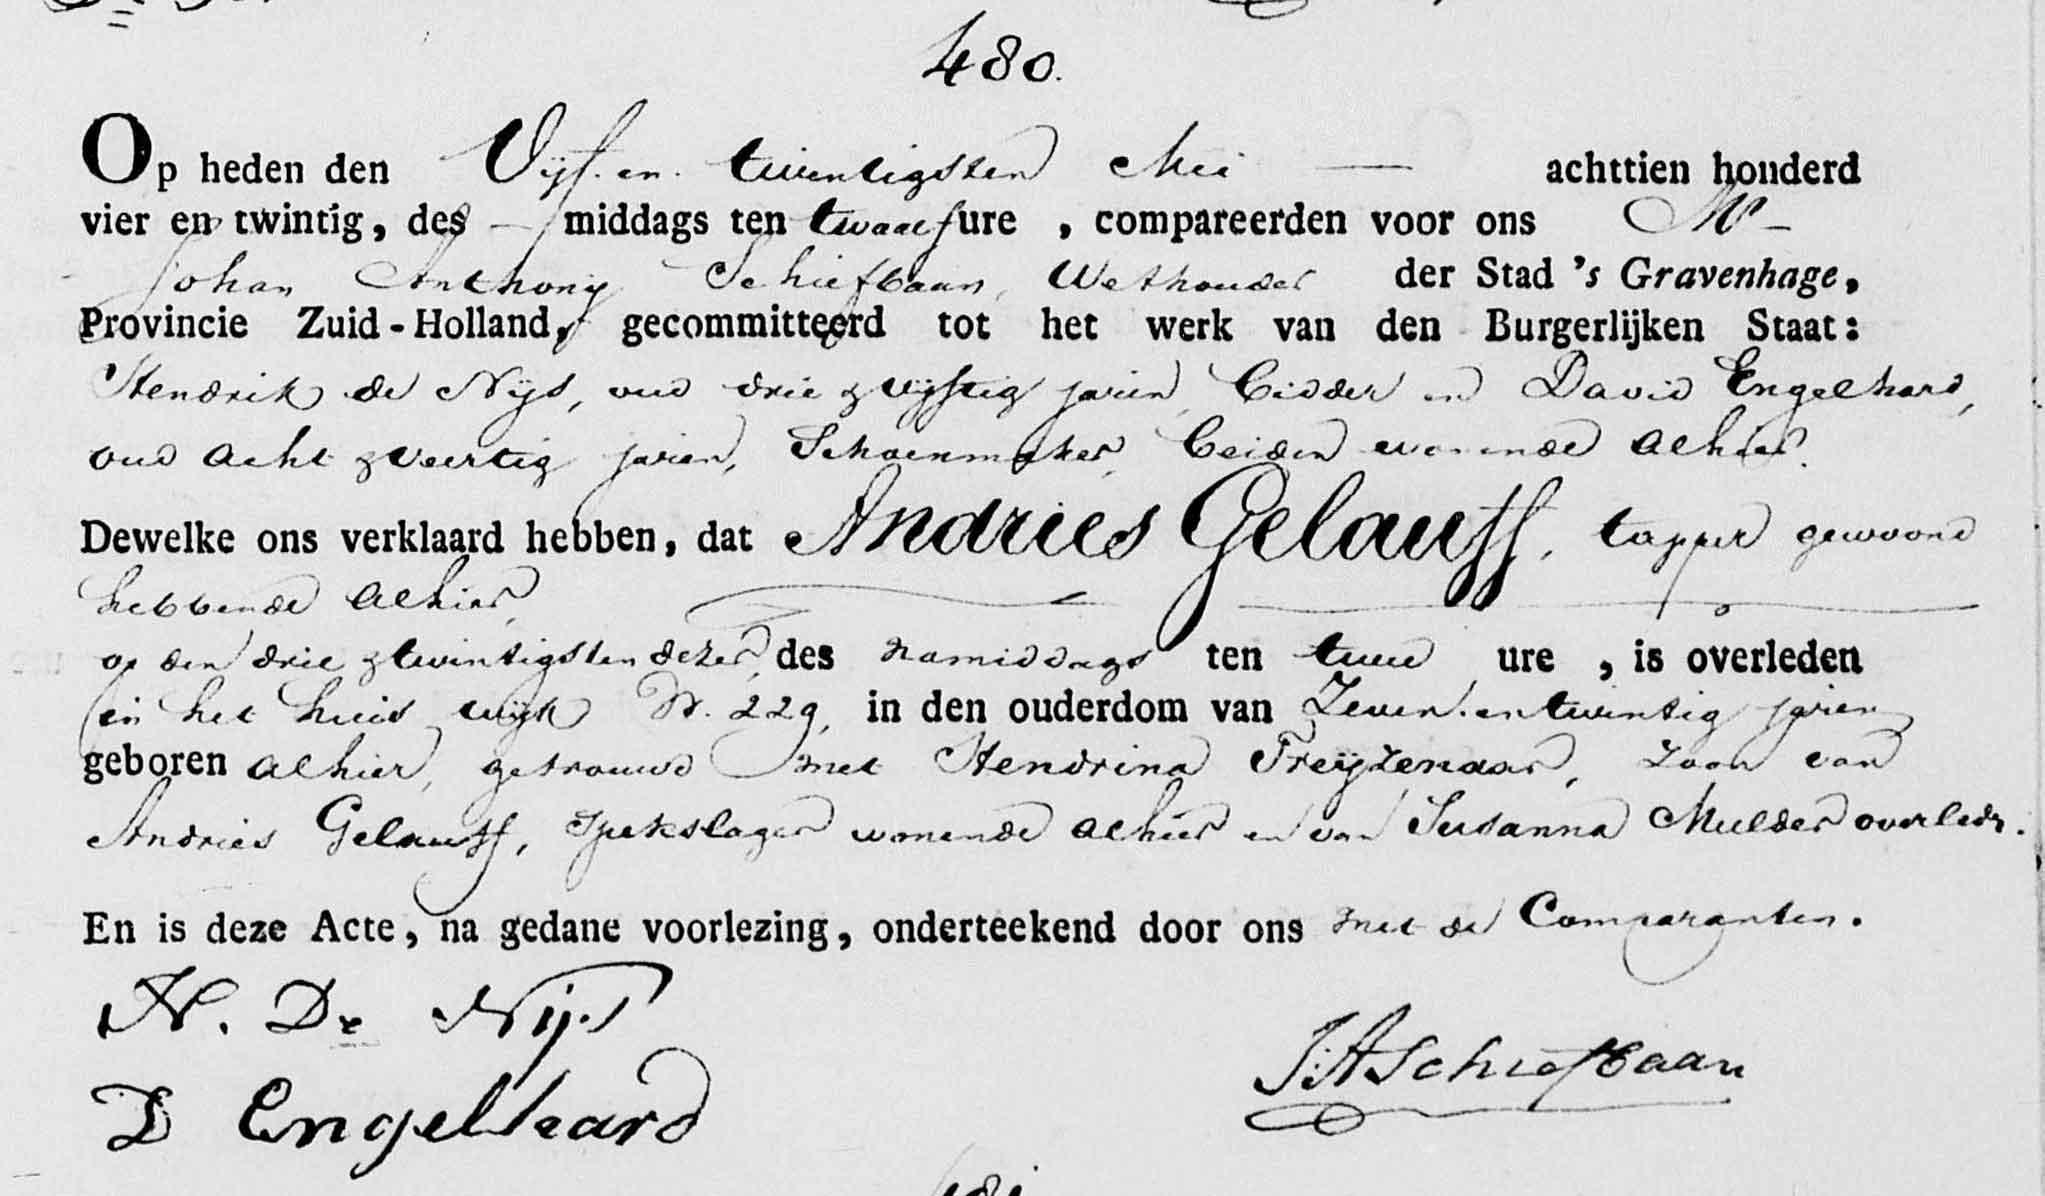 480.
Op heden den Vijf. en. twintigsten Mei — achttien honderd
vier en twintig, des — middags ten twaalf ure , compareerden voor ons Mr
Johan Anthony Schiefbaan, Wethouder der Stad 's Gravenhage,
Provincie Zuid-Holland, gecommitteerd tot het werk van den Burgerlijken Staat:
Hendrik de Nijs, oud drie & vijftig jaren, Bidder en David Engelhard,
oud acht & veertig jaren, Schoenmaker, beiden wonende alhier.
Dewelke ons verklaard hebben, dat Andries Gelauff, tapper gewoond
hebbende alhier,
op den drie & twintigsten dezer, des namiddags ten twee ure , is overleden
in het huis wijk N. 229, in den ouderdom van Zeven. en twintig jaren
geboren alhier, getrouwd met Hendrina Treijzenaar, zoon van
Andries Gelauff, Spekslager wonende alhier en van Susanna Mulder overledn.
En is deze Acte, na gedane voorlezing, onderteekend door ons met de Comparanten.
H. De Nijs
J:A Schiefbaan
D Engelhard
481